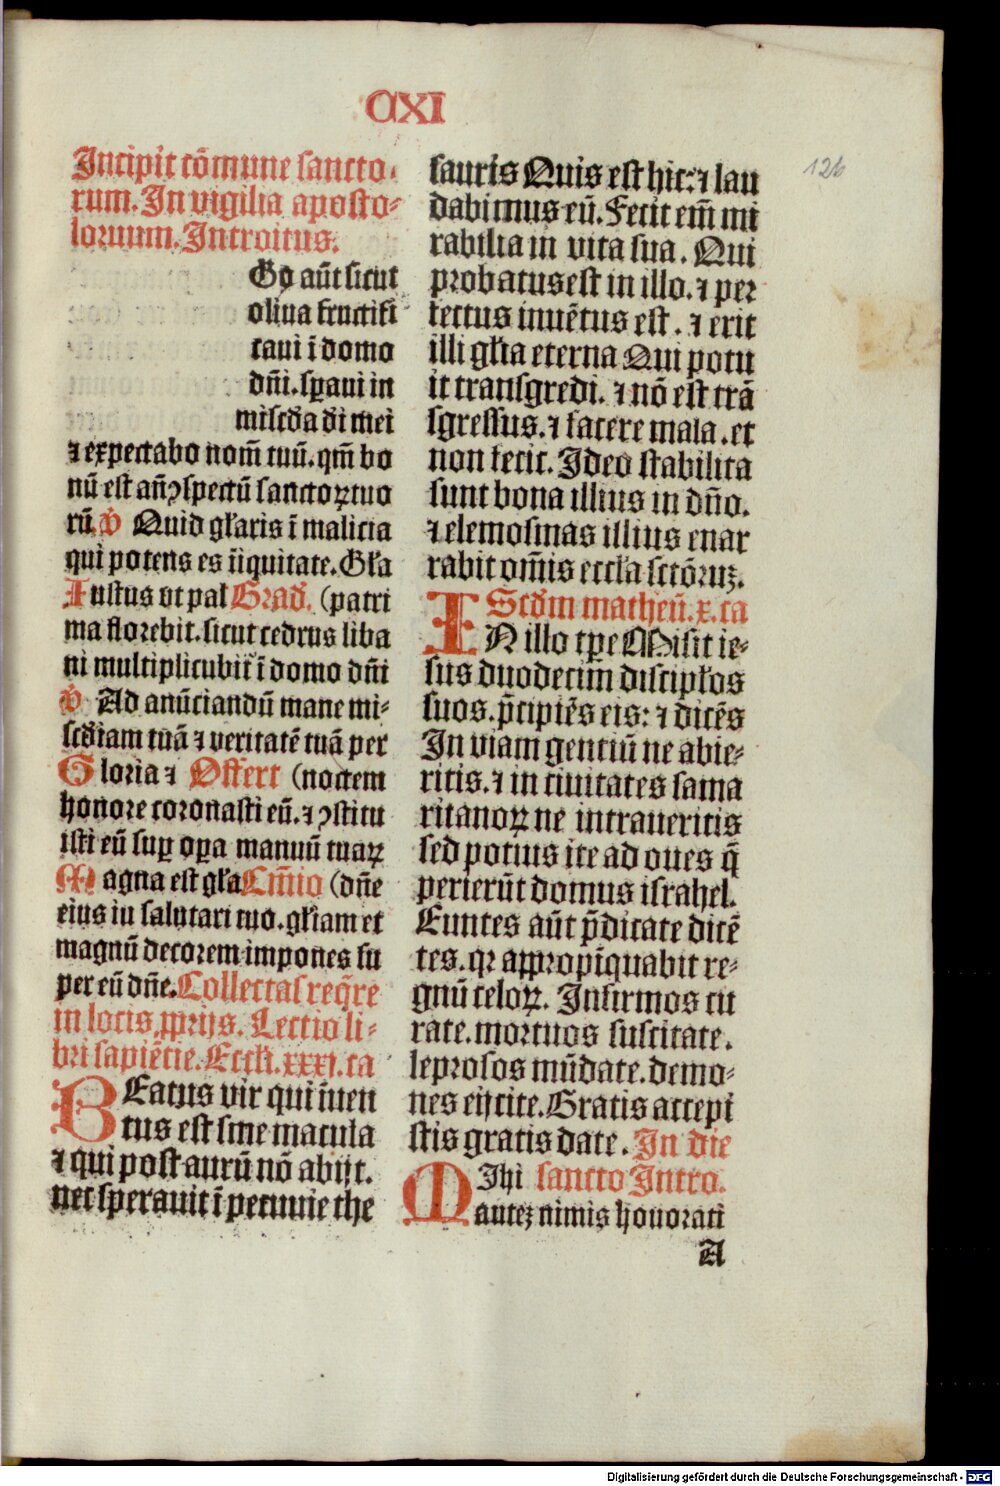 CXI
126
Incipit cōmune sancto-
rum. In vigilia aposto-
lorum. Introitus.
Go aūt sicut
oliua fructifi
caui ī domo
dn̄i. sꝑaui in
miscd̄a di mei
⁊ expectabo nom̄ tuū. qm̄ bo
nū est an̄ ꝯspectū sanctoꝝ tuo
rū. ꝟ Quid gl̄aris ī malicia
qui potens es īiquitate. Gl̄a
Iustus vt pal Grad̄. (patri
ma florebit. sicut cedrus liba
ni multiplicubit̄ ī domo dn̄i
ꝟ Ad anūciandū mane mi-
scd̄iam tuā ⁊ veritatē tuā per
Gloria ⁊ Offert (noctem
honore coronasti eū. ⁊ ꝯstitu
isti eū suꝑ oꝑa manuū tuaꝝ
Magna est gl̄a Cm̄io (dn̄e
eius in salutari tuo. gl̄iam et
magnū decorem impones su
per eū dn̄e. Collectas reqr̄e
in locis ꝓprijs. Lectio li-
bri sapiētie. Eccl̄i. xxxi. ca
BEatus vir qui īuen
tus est sine macula
⁊ qui post aurū nō abijt.
nec sperauit ī pecunie the
sauris Quis est hic: ⁊ lau
dabimus eū. Fecit em̄ mi
rabilia in vita sua. Qui
probatus est in illo. ⁊ per
fectus inuētus est. ⁊ erit
illi gl̄ia eterna Qui potu
it transgredi. ⁊ nō est trā
sgressus. ⁊ facere mala. et
non fecit. Ideo stabilita
sunt bona illius in dn̄o.
⁊ elemosinas illius enar
rabit om̄is eccl̄a sctōruꝫ.
Scd̄m matheū. x. ca
IN illo tꝑe Misit ie-
sus duodecim discipl̄os
suos. p̄cipiēs eis: ⁊ dicēs
In viam gentiū ne abie-
ritis. ⁊ in ciuitates sama
ritanoꝝ ne intraueritis
sed potius ite ad oues q̄
perierūt domus israhel.
Euntes aūt p̄dicate dicē
tes. qꝛ appropīquabit re-
gnū celoꝝ. Infirmos cu
rate. mortuos suscitate.
leprosos mūdate. demo-
nes eijcite. Gratis accepi
stis gratis date. In die
MIhi sancto Intro.
auteꝫ nimis honorati
A
Digitalisierung gefördert durch die Deutsche Forschungsgemeinschaft - DFG